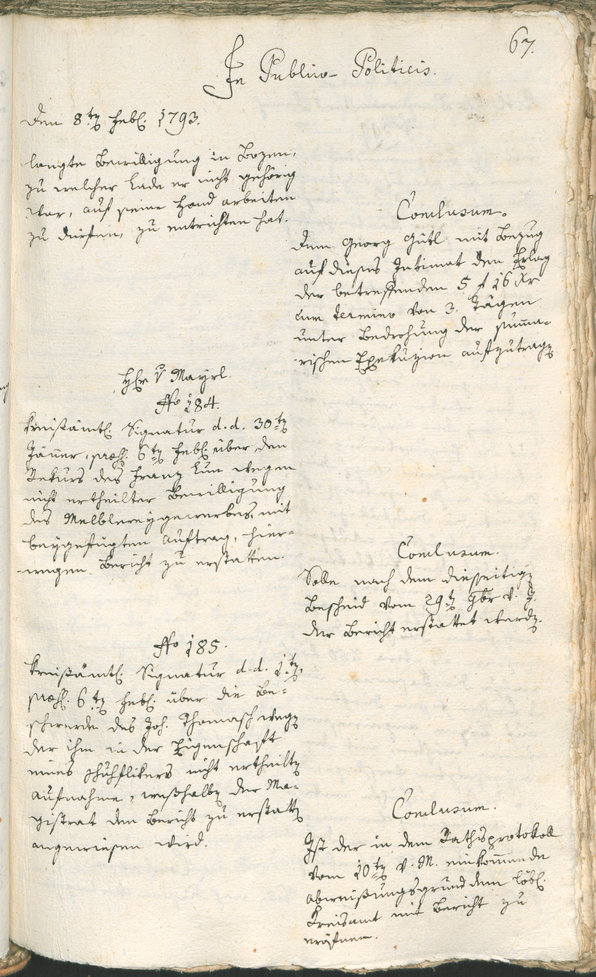 67.
In Publico-Politicis.
Den 8ten Febr. 1793.
langte Bewilligung in Bozen,
zu welcher Lade er nicht gehörig
war, auf seine Hand arbeiten
zu dürfen, zu entrichten hat.
Conclusum.
Dem Georg Gütl mit Bezug
auf dieses Intimat den Erlag
der betreffenden 5 f 16 Xr
cum termino von 3. Tägen
unter Bedrohung der summa-
rischen Exekuzion aufzutragen
Hr. v Mayrl.
No 184.
Kreisämtl. Signatur d. d. 30ten
Jäner, præs. 6ten Febr. über den
Rekurs des Franz Lun wegen
nicht ertheilter Bewilligung
des Melblereygewerbes, mit
beygefügten Auftrag, hier-
wegen Bericht zu erstatten.
Conclusum.
Solle nach dem diesseitigen
Bescheid vom 29ten 9br v. J.
der Bericht erstattet werden.
No 185.
Kreisämtl. Signatur d. d. 1ten
præs. 6ten Febr. über die Be-
schwerde des Joh. Thomasch wegen
der ihm in der Eigenschaft
eines Schuhflikers nicht ertheilten
Aufnahme, weshalben der Ma-
gistrat den Bericht zu erstatten
angewiesen wird.
Conclusum.
Ist der in dem Rathsprotokoll
vom 10ten v. M. einkommende
Abweisungsgrund dem löbl.
Kreisamt mit Bericht zu
eröfnen.